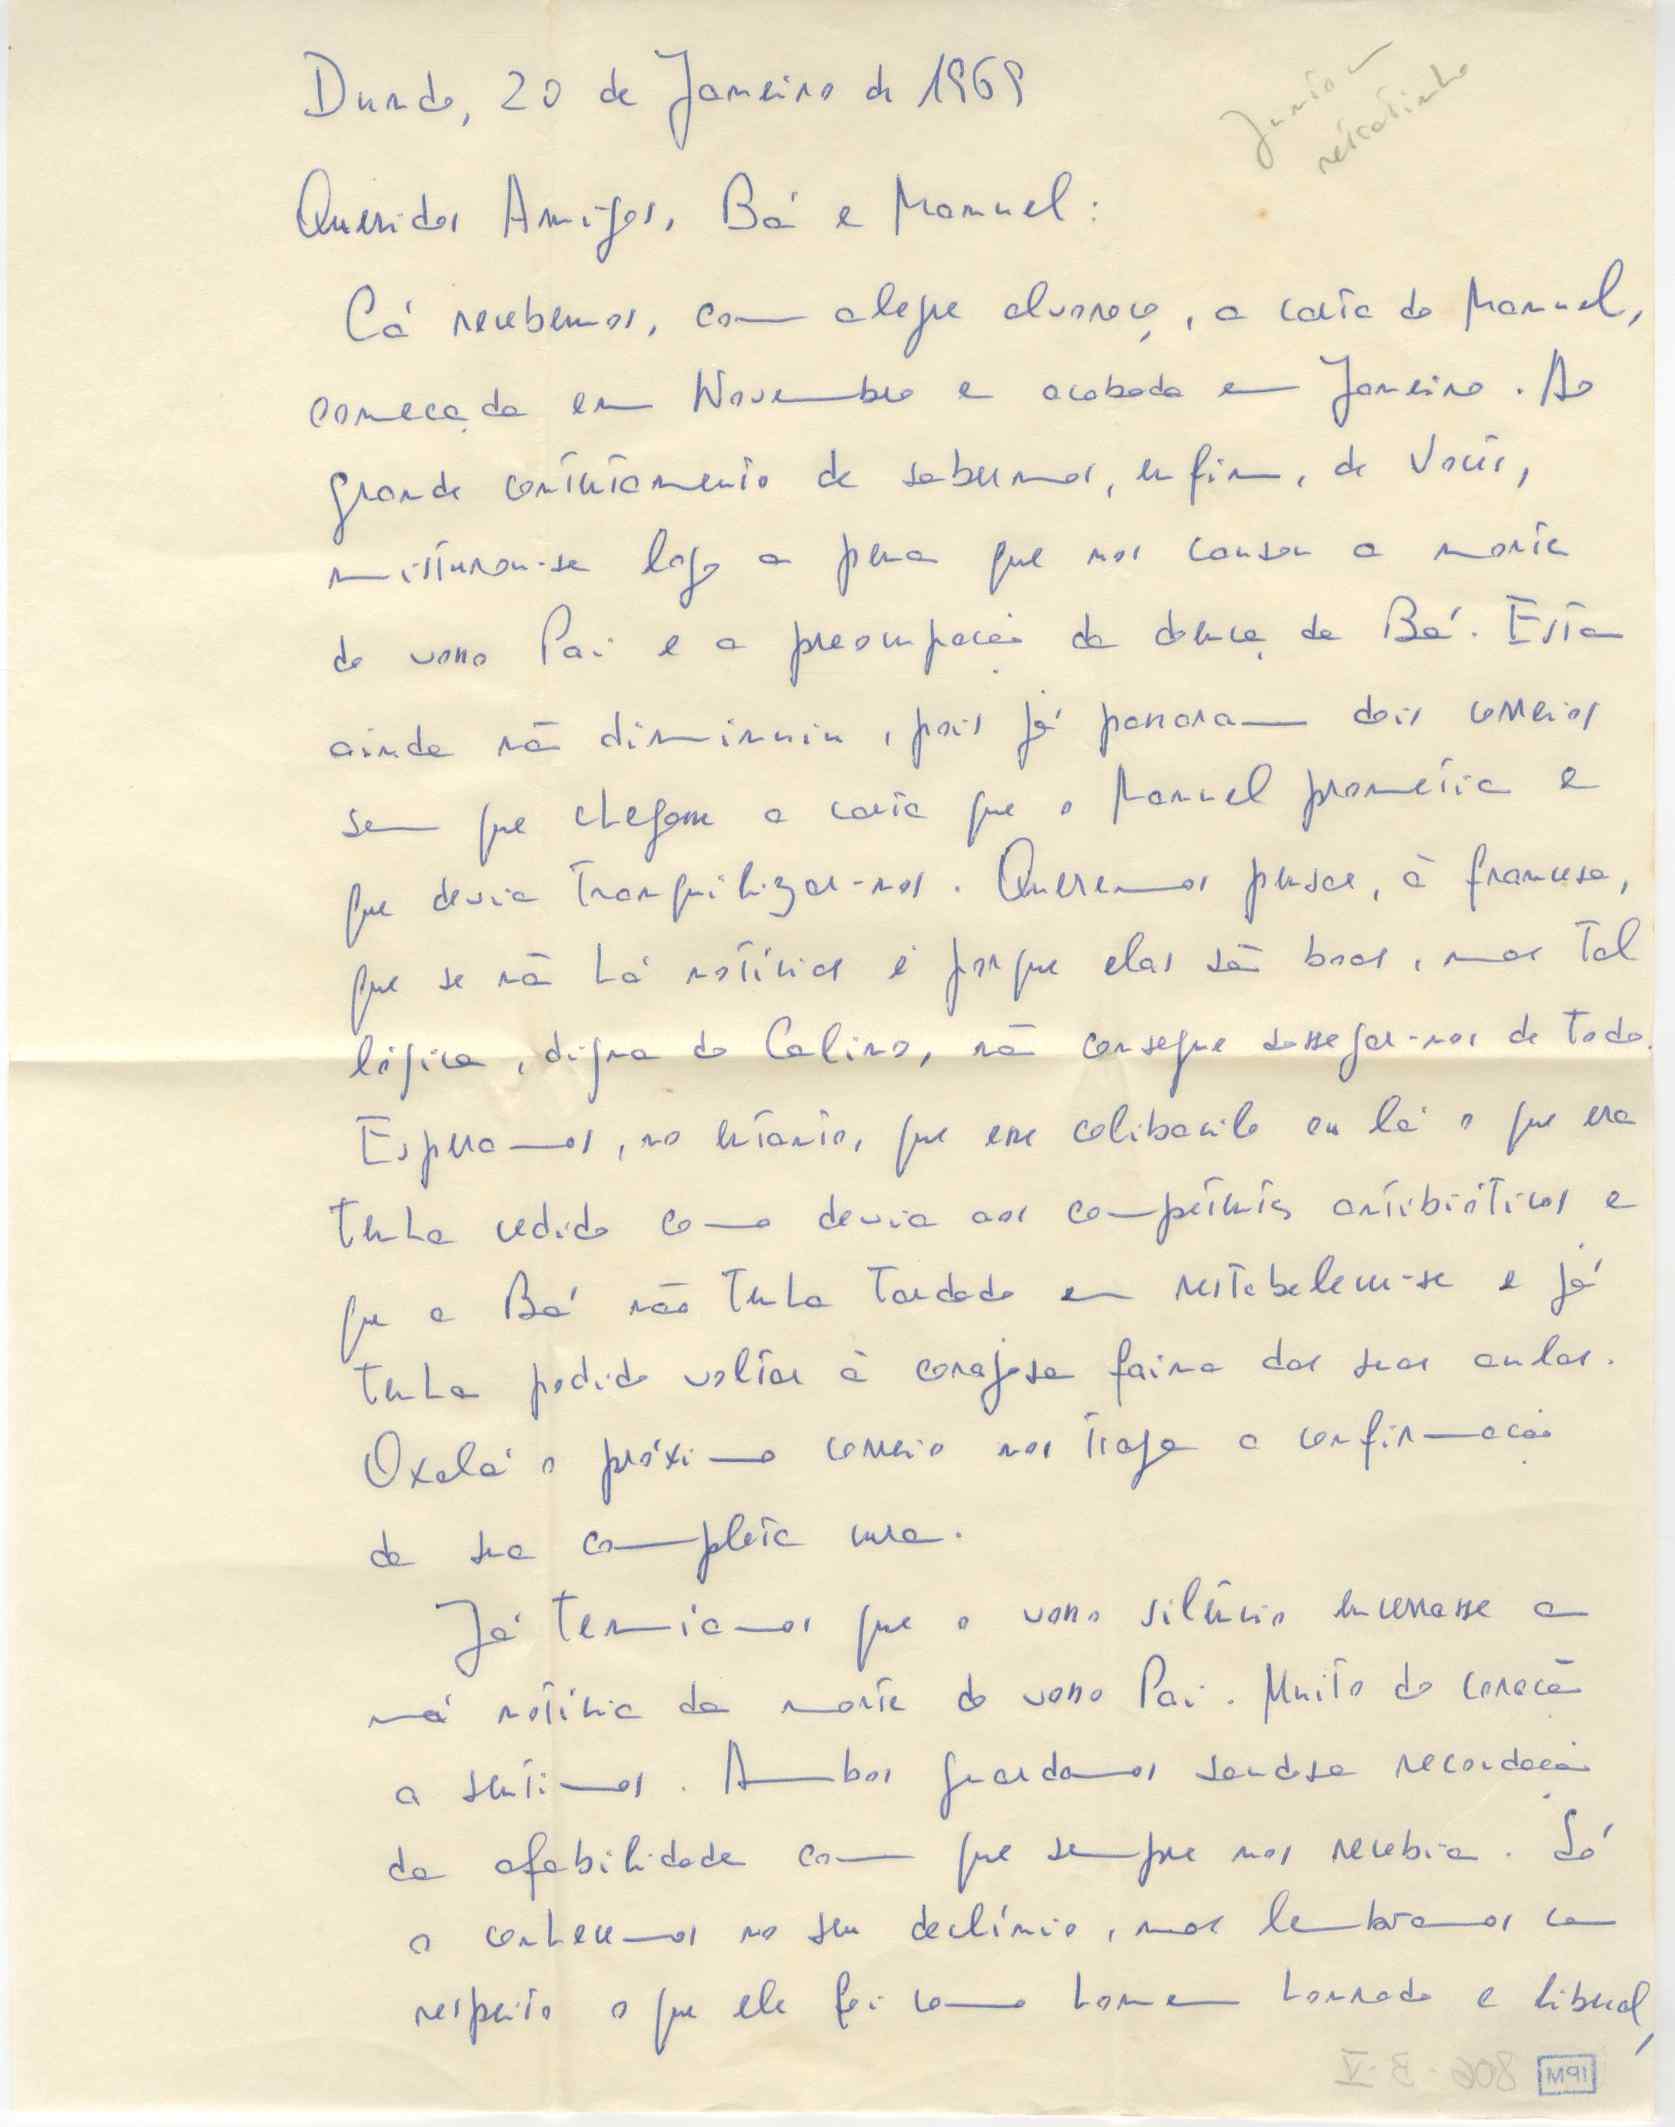 Dundo, 20 de Janeiro de 1969
Junto 1
retratinho
Queridos Amigos, Bá e Manuel:
Cá recebemos, com alegre alvoroço, a carta do Manuel,
começada em Novembro e acabada em Janeiro. Ao
grande contentamento de sabermos, enfim, de Vocês,
misturou-se logo a pena que nos causou a morte
do vosso Pai e a preocupação da doença da Bá. Esta
ainda não diminuiu, pois já passaram dois correios
sem que chegasse a carta que o Manuel prometia e
que devia tranquilizar-nos. Queremos pensar, à francesa,
que se não há notícias é porque elas são boas, mas tal
lógica, digna do Calino, não consegue sossegar-nos de todo.
Esperamos, no entanto, que esse colibacilo ou lá o que era
tenha cedido como devia aos competentes antibióticos e
que a Bá não tenha tardado em restabelecer-se e já
tenha podido voltar à corajosa faina das suas aulas.
Oxalá o próximo correio nos traga a confirmação
da sua completa cura.
Já temíamos que o vosso silêncio encerrasse a
má notícia da morte do vosso Pai. Muito do coração
a sentimos. Ambos guardamos saudosa recordação
da afabilidade com que sempre nos recebia. Só
o conhecemos no seu declínio, mas lembramos com
respeito o que ele foi como homem honrado e liberal,
806-3-V
IPM